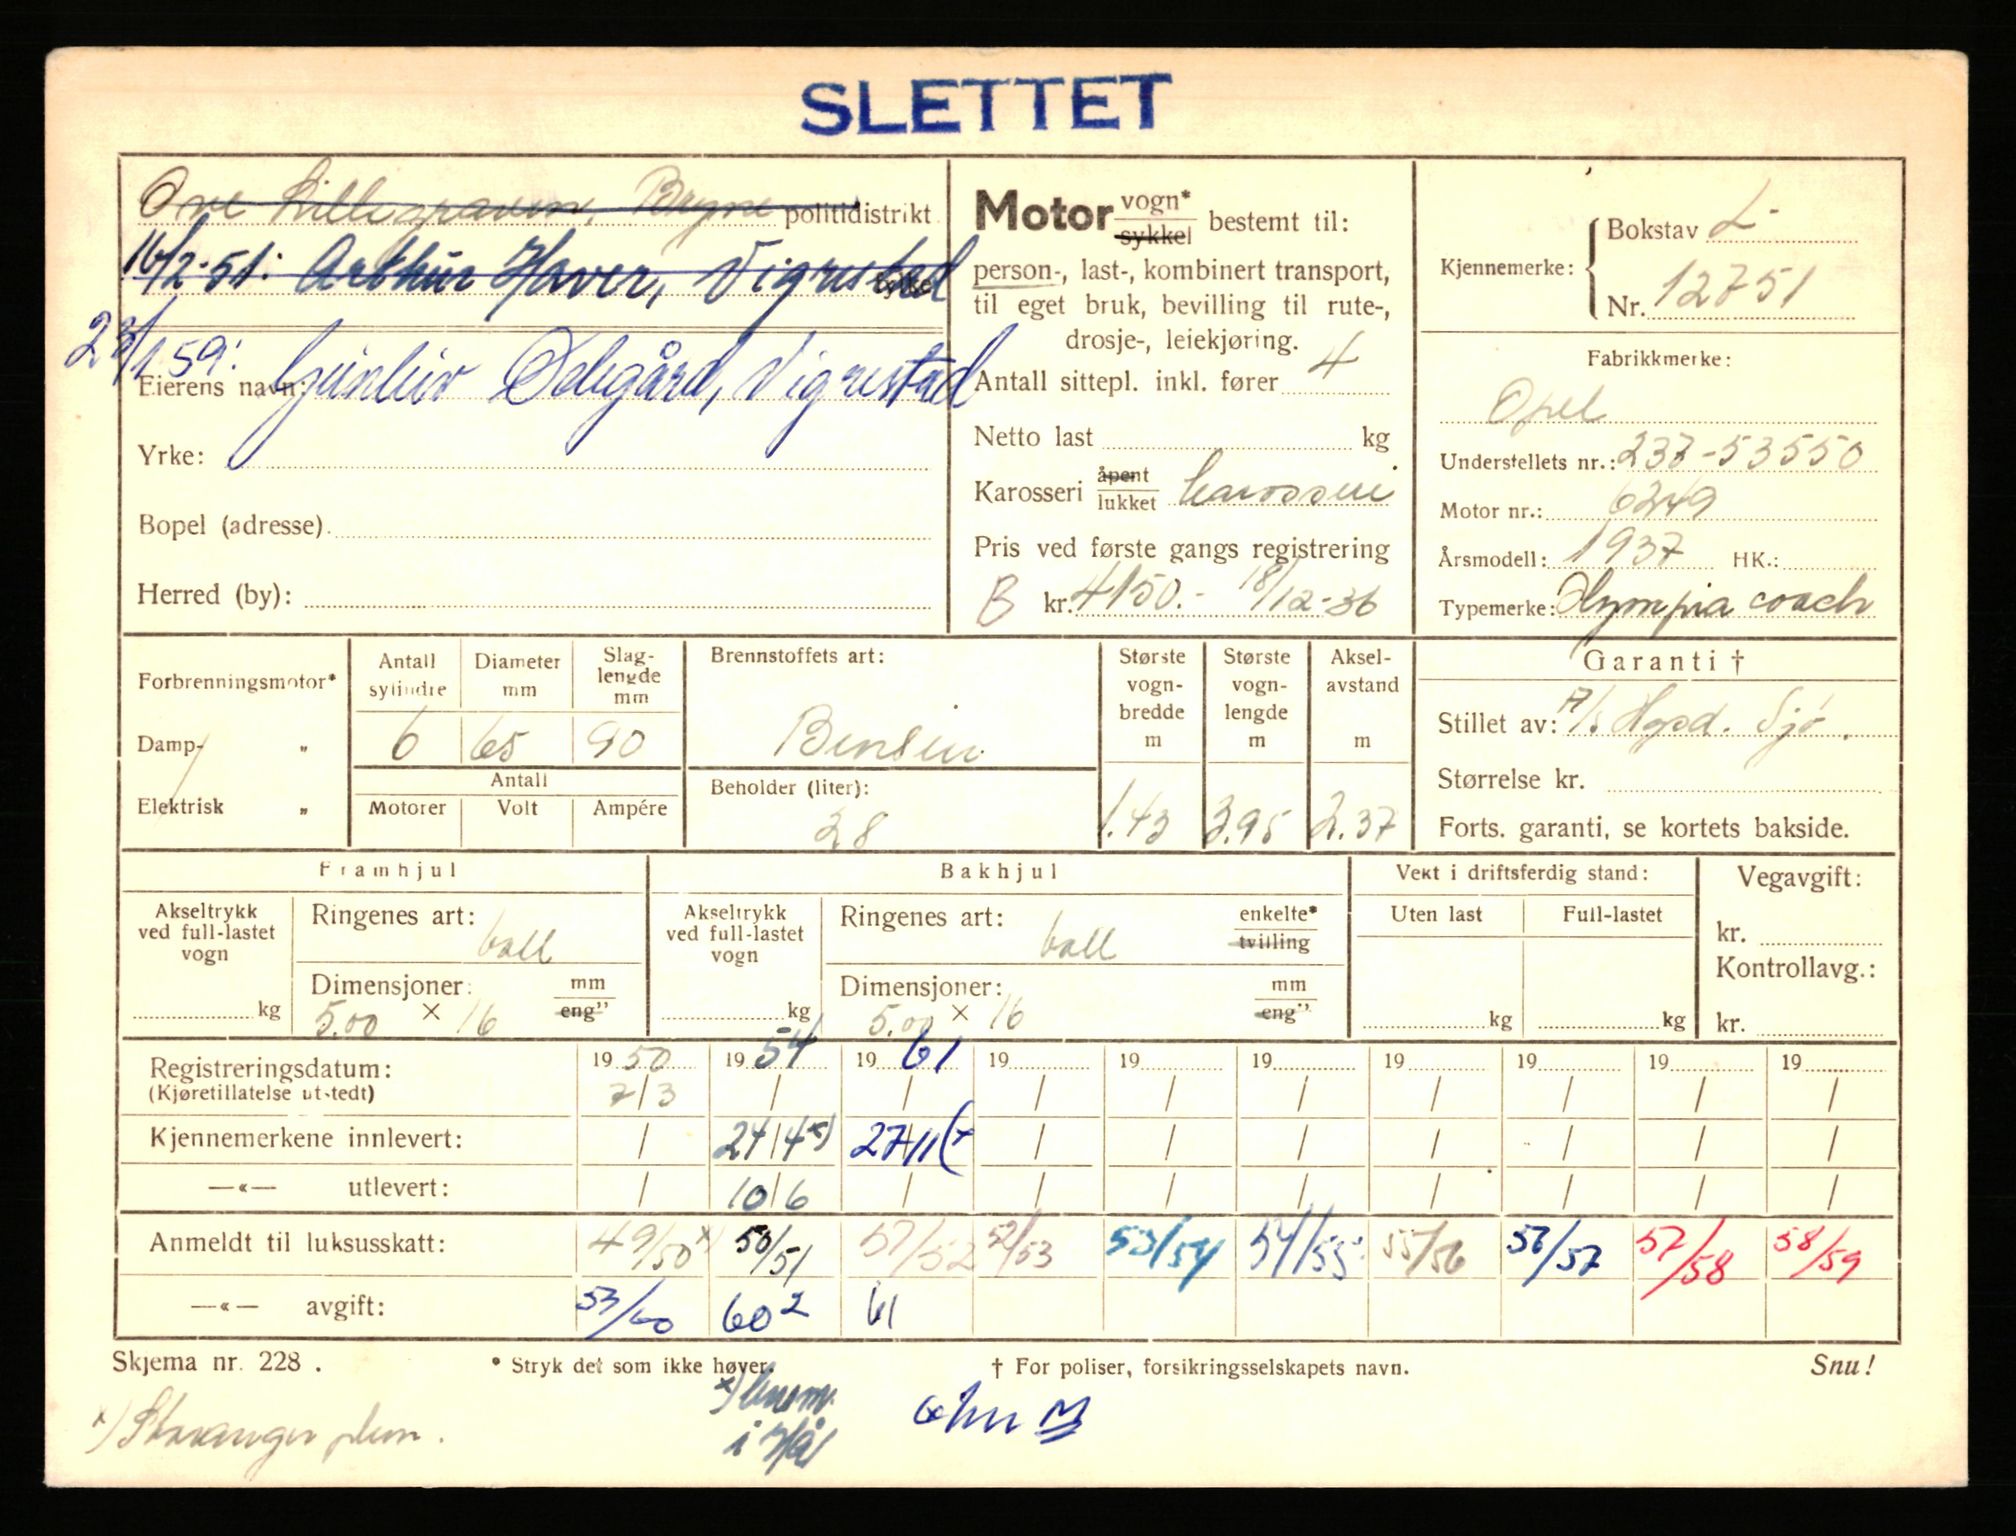 SLETTET
Ove Lillegraven, Bryne politidistrikt
16/2-51: Arthur Haver, Vigrestad
23/1 59:
Eierens navn: Gunleiv Ødegård, Vigrestad
Yrke:
Bopel (adresse)
Herred (by):
Motor vogn* sykkel bestemt til:
person-, last-, kombinert transport,
til eget bruk, bevilling til rute-,
drosje-, leiekjøring.
Antall sittepl. inkl. fører 4
Netto last kg
Karosseri åpent lukket karosseri
Pris ved første gangs registrering
B kr. 4150.- 18/12-36
Kjennemerke:
Bokstav L-
Nr. 12751
Fabrikkmerke:
Opel
Understellets nr.: 237-53550
Motor nr.: 6249
Årsmodell: 1937 HK.:
Typemerke: Olympia coach
Forbrenningsmotor*
Damp- „
Elektrisk „
Antall sylindre Diameter mm Slag-lengde mm
6 65 90
Antall
Motorer Volt Ampére
Brennstoffets art:
Bensin
Beholder (liter):
28
Største vogn-bredde m
1.43
Største vogn-lengde m
3.95
Aksel-avstand m
2.37
Garanti †
Stillet av: A/S Hgsd. Sjø.
Størrelse kr.
Forts. garanti, se kortets bakside.
Framhjul
Akseltrykk ved full-lastet vogn
kg
Ringenes art:
ball
Dimensjoner: mm eng"
5.00 × 16
Bakhjul
Akseltrykk ved full-lastet vogn
kg
Ringenes art: enkelte* tvilling
ball
Dimensjoner: mm eng"
5.00 × 16
Vekt i driftsferdig stand:
Uten last Full-lastet
kg kg
Vegavgift:
kr.
Kontrollavg.:
kr.
Registreringsdatum: 1950 1954 1961 19 19 19 19 19 19 19
(Kjøretillatelse utstedt) 7/3 / / / / / / / / /
Kjennemerkene innlevert: / 24/4 x) 27/11 (+ / / / / / / /
—«— utlevert: / 10/6 / / / / / / / /
Anmeldt til luksusskatt: 49/50 x) 50/51 51/52 52/53 53/54 54/55 55/56 56/57 57/58 58/59
—«— avgift: 59/60 60 2 61
Skjema nr. 228. * Stryk det som ikke høver. † For poliser, forsikringsselskapets navn. Snu!
x) Stavanger
x)
i Hå